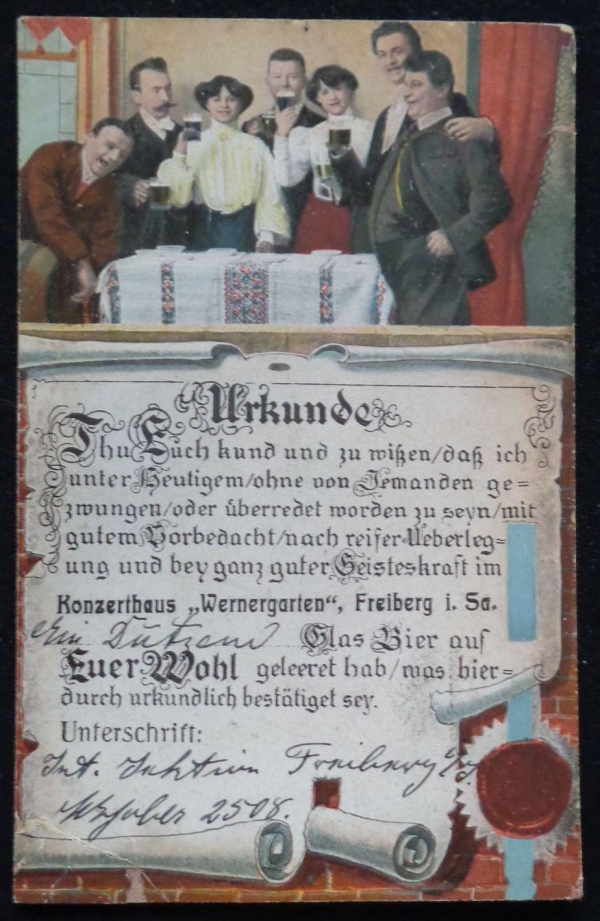 Urkunde
Thu Euch kund und zu wißen/daß ich
unter Heutigem/ohne von Jemanden ge=
zwungen/oder überredet worden zu seyn/mit
gutem Vorbedacht/nach reifer Ueberleg=
ung und bey ganz guter Geisteskraft im
Konzerthaus „Wernergarten“, Freiberg i. Sa.
Ein Dutzend Glas Bier auf
Euer Wohl geleeret hab/was hier=
durch urkundlich bestätiget sey.
Unterschrift:
Int. Sektion Freiberg
2508.